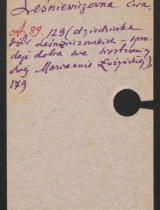 Leśniewiczówna Ewa
A. 89. 129 (dziedziczka
dóbr Leśniewiczowskich - sprze-
daje dobra swe siostrze
swej Mariannie Żużyńskiej),
179